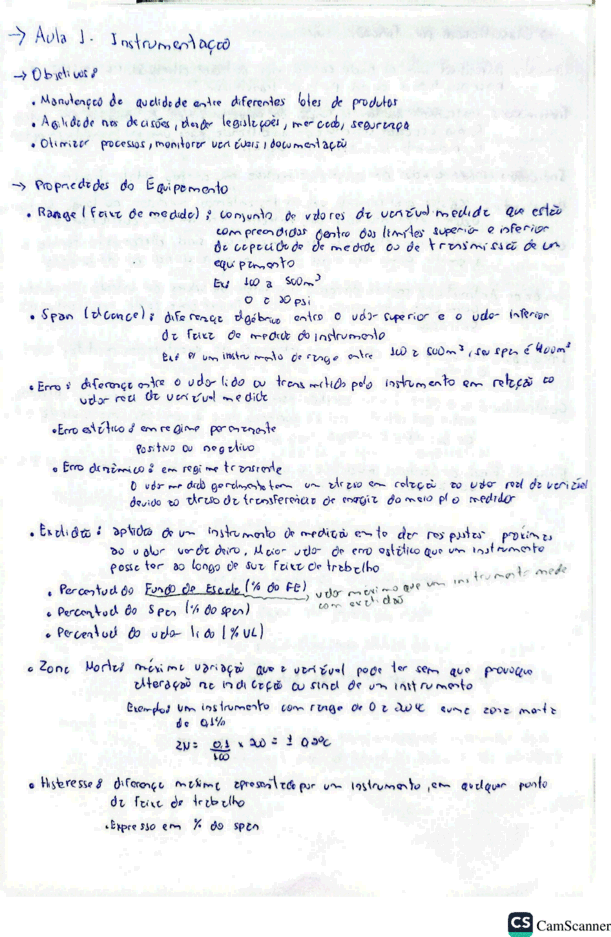 → Aula 1. Instrumentação
→ Objetivos:
• Manutenção da qualidade entre diferentes lotes de produtos
• Agilidade nas decisões, dados legislações, mercado, segurança
• Otimizar processos, monitorar variáveis, documentação
→ Propriedades do Equipamento
• Range (faixa de medida): conjunto de valores da variável medida que estão
compreendidos dentro dos limites superior e inferior
da capacidade de medida ou de transmissão de um
equipamento
Ex: 100 a 500m³
0 a 20 psi
• Span (alcance): diferença algébrica entre o valor superior e o valor inferior
da faixa de medida do instrumento
Ex: p/ um instrumento de range entre 100 a 500m³, seu span é 400m³
• Erro: diferença entre o valor lido ou transmitido pelo instrumento em relação ao
valor real da variável medida
• Erro estático: em regime permanente
Positivo ou negativo
• Erro dinâmico: em regime transiente
O valor medido geralmente tem um atraso em relação ao valor real da variável
devido ao atraso de transferência de energia do meio p/ o medidor
• Exatidão: aptidão de um instrumento de medição em dar respostas próximas
ao valor verdadeiro. Maior valor de erro estático que um instrumento
possa ter ao longo de sua faixa de trabalho
• Percentual do Fundo de Escala (% do FE), valor máximo que um instrumento mede
com exatidão
• Percentual do Span (% do span)
• Percentual do valor lido (% VL)
• Zona Morta: máxima variação que a variável pode ter sem que provoque
alteração na indicação ou sinal de um instrumento
Exemplo: um instrumento com range de 0 a 200°C e uma zona morta
de 0,1%
ZM = 0,1/100 x 200 = ± 0,2°C
• Histerese: diferença máxima apresentada por um instrumento, em qualquer ponto
da faixa de trabalho
• Expresso em % do span
CS CamScanner